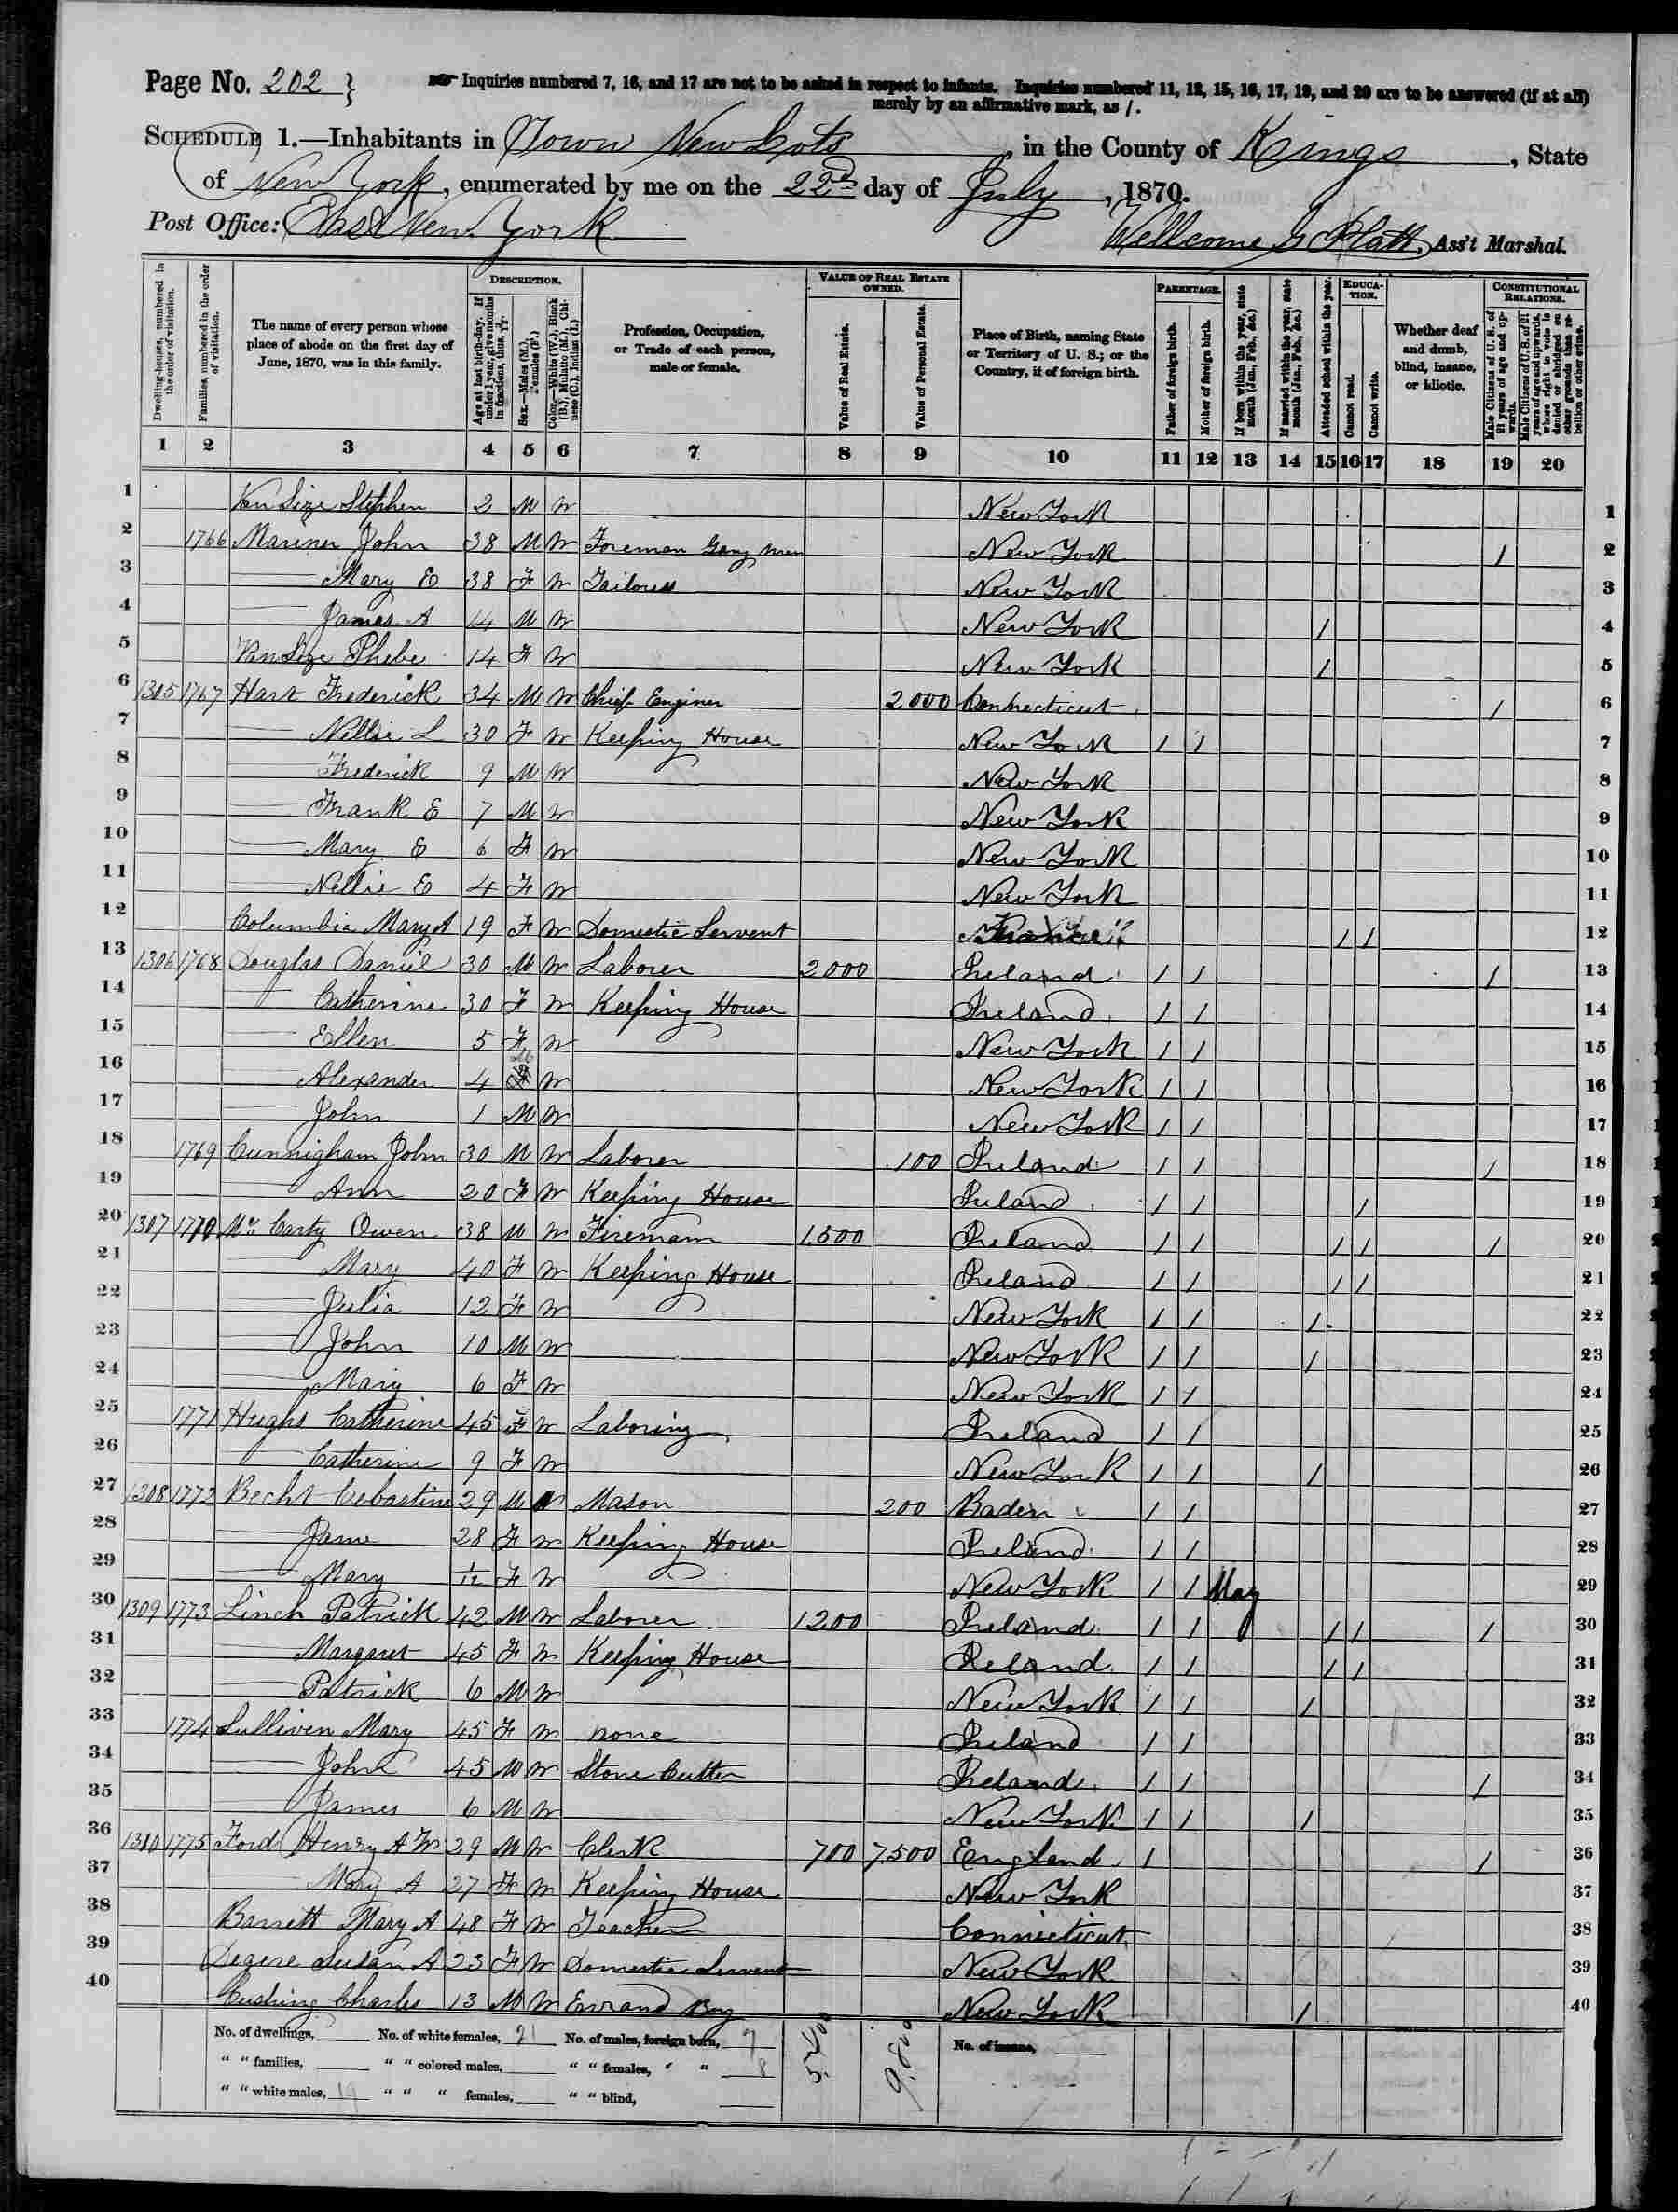 Page No. 202 }
Inquiries numbered 7, 16, and 17 are not to be asked in respect to infants. Inquiries numbered 11, 12, 15, 16, 17, 19, and 20 are to be answered (if at all)
merely by an affirmative mark, as /.
SCHEDULE 1.—Inhabitants in Town New Lots, in the County of Kings, State
of New York, enumerated by me on the 22nd day of July, 1870.
Post Office: East New York
Wellcome G Platt, Ass't Marshal.
Dwelling-houses, numbered in the order of visitation.
Families, numbered in the order of visitation.
The name of every person whose place of abode on the first day of June, 1870, was in this family.
DESCRIPTION.
Age at last birth-day. If under 1 year, give months in fractions, thus, 3/12
Sex.—Males (M.), Females (F.)
Color.—White (W.), Black (B.), Mulatto (M.), Chinese (C.), Indian (I.)
Profession, Occupation, or Trade of each person, male or female.
VALUE OF REAL ESTATE OWNED.
Value of Real Estate.
Value of Personal Estate.
Place of Birth, naming State or Territory of U. S.; or the Country, if of foreign birth.
PARENTAGE.
Father of foreign birth.
Mother of foreign birth.
If born within the year, state month (Jan., Feb., &c.)
If married within the year, state month (Jan., Feb., &c.)
EDUCATION.
Attended school within the year.
Cannot read.
Cannot write.
Whether deaf and dumb, blind, insane, or idiotic.
CONSTITUTIONAL RELATIONS.
Male Citizens of U. S. of 21 years of age and upwards.
Male Citizens of U. S. of 21 years of age and upwards, whose right to vote is denied or abridged on other grounds than rebellion or other crime.
1 2 3 4 5 6 7 8 9 10 11 12 13 14 15 16 17 18 19 20
1 Van Size Stephen 2 M W New York 1
2 1766 Mariner John 38 M W Foreman Gang men New York / 2
3 — Mary E 38 F W Tailoress New York 3
4 — James A 14 M W New York / 4
5 Van Size Phebe 14 F W New York / 5
6 1305 1767 Hart Frederick 34 M W Chief Enginer 2000 Connecticut / 6
7 — Nellie L 30 F W Keeping House New York / / 7
8 — Frederick 9 M W New York 8
9 — Frank E 7 M W New York 9
10 — Mary E 6 F W New York 10
11 — Nellie E 4 F W New York 11
12 Columbia Mary A 19 F W Domestic Servent / / 12
13 1306 1768 Douglas Daniel 30 M W Laborer 2000 Ireland / / / 13
14 — Catherine 30 F W Keeping House Ireland / / 14
15 — Ellen 5 F W New York / / 15
16 — Alexander 4 M W New York / / 16
17 — John 1 M W New York / / 17
18 1769 Cunnigham John 30 M W Laborer 100 Ireland / / / 18
19 — Ann 20 F W Keeping House Ireland / / / 19
20 1307 1770 Mc Carty Owen 38 M W Fireman 1500 Ireland / / / / / 20
21 — Mary 40 F W Keeping House Ireland / / / / 21
22 — Julia 12 F W New York / / / 22
23 — John 10 M W New York / / / 23
24 — Mary 6 F W New York / / 24
25 1771 Hughs Catherine 45 F W Laboring Ireland / / 25
26 — Catherine 9 F W New York / / / 26
27 1308 1772 Becht Cebastine 29 M W Mason 200 Baden / / 27
28 — Jane 28 F W Keeping House Ireland / / 28
29 — Mary 1/12 F W New York / / May 29
30 1309 1773 Linch Patrick 42 M W Laborer 1200 Ireland / / / / / 30
31 — Margaret 45 F W Keeping House Ireland / / / / 31
32 — Patrick 6 M W New York / / / 32
33 1774 Sulliven Mary 45 F W none Ireland / / 33
34 — John 45 M W Stone Cutter Ireland / / / 34
35 — James 6 M W New York / / / 35
36 1310 1775 Ford Henry A W 29 M W Clerk 700 7500 England / / 36
37 — Mary A 27 F W Keeping House New York 37
38 Barrett Mary A 48 F W Teacher Connecticut 38
39 Degere Susan A 23 F W Domestic Servent New York 39
40 Cushing Charles 13 M W Errand Boy New York / 40
No. of dwellings, No. of white females, 21 No. of males, foreign born, 7 5400 9800 No. of insane,
" " families, " " colored males, " " females, " " 8
" " white males, 19 " " " females, " " blind,